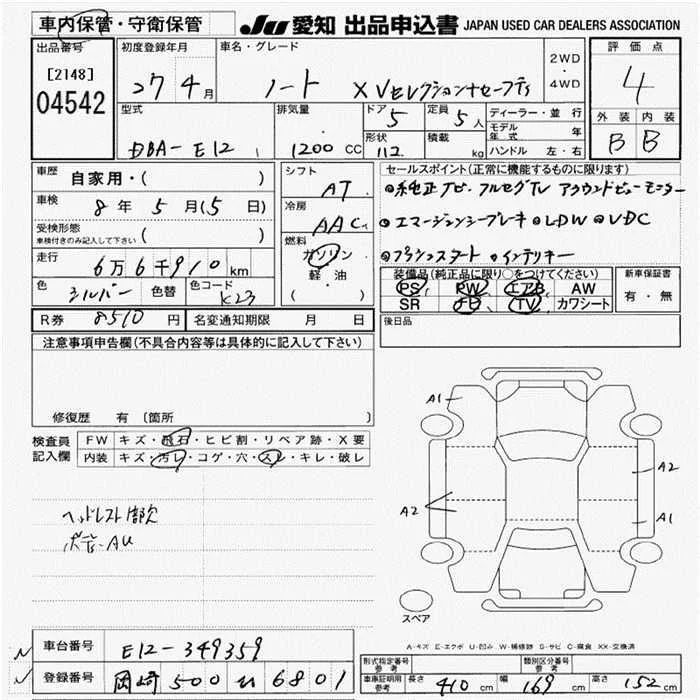 車内保管・守衛保管 JU 愛知 出品申込書 JAPAN USED CAR DEALERS ASSOCIATION
出品番号 初度登録年月 車名・グレード 2WD・4WD 評価点
[2148] 27年4月 ノート X Vセレクション+セーフティ 4
04542 型式 排気量 ドア 5 定員 5人 ディーラー・並行 外装 内装
DBA-E12 1200CC 形状 112 積載 kg モデル年式 年 B B
ハンドル 左・右
車歴 自家用・( ) シフト AT セールスポイント(正常に機能するものに限ります)
車検 8年5月(5日) 冷房 AAC 純正ナビ フルセグTV アラウンドビューモニター
受検形態 車検付きのみ記入して下さい ( ) エマージェンシーブレーキ LDW VDC
走行 6万6千910km 燃料 ガソリン 軽油 ( ・ ) プッシュスタート インテリキー
色 シルバー 色替 色コード K23 装備品(純正品に限り○をつけてください) 新車保証書
PS PW エアB AW 有・無
R券 8510円 名変通知期限 月 日 SR ナビ TV カワシート
注意事項申告欄(不具合内容等は具体的に記入して下さい) 後日品
修復歴 有 (箇所
検査員記入欄 FW キズ・飛石・ヒビ割・リペア跡・X要
内装 キズ・汚レ・コゲ・穴・スレ・キレ・破レ
A1
A2
A2
A1
ヘッドレスト1部欠
ボディーAU
スペア
A-キズ E-エクボ U-凹み W-補修跡 S-サビ C-腐食 XX-交換済
車台番号 E12-349359
登録番号 岡崎 500 6801
型式指定番号 参考 類別区分番号 参考
車庫証明用 参考 長さ 410cm 幅 169cm 高さ 152cm